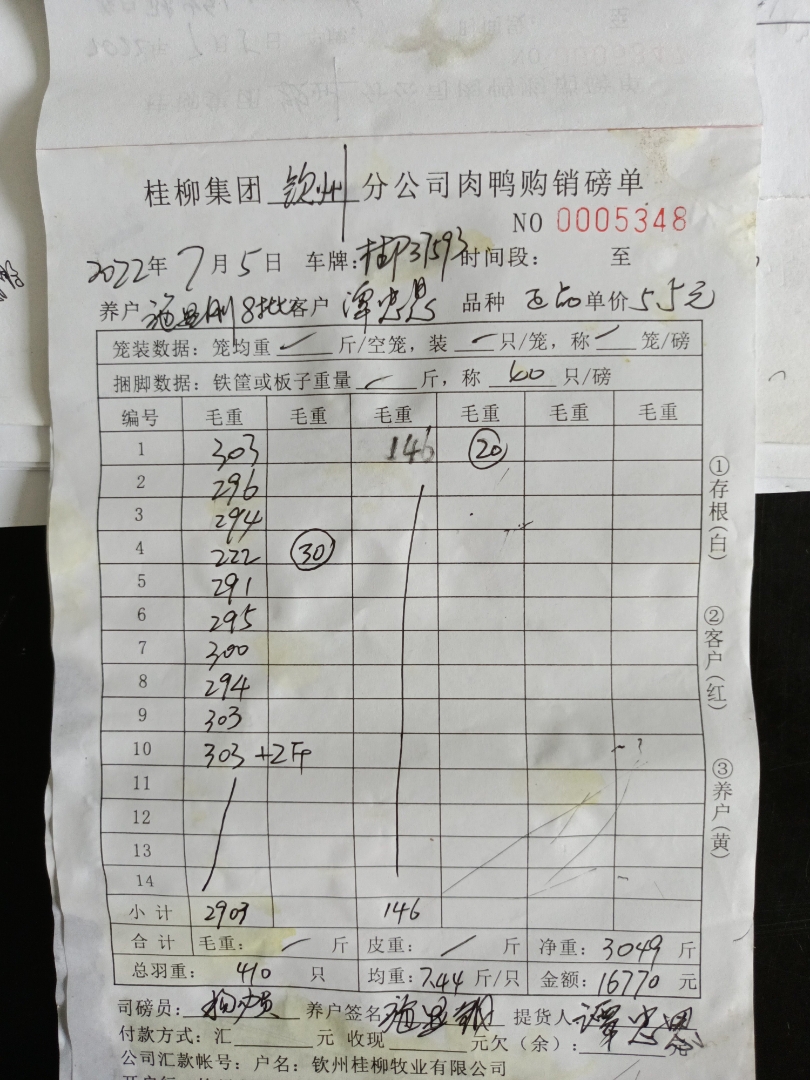 桂柳集团 钦州 分公司肉鸭购销磅单
NO 0005348
2022年 7月5日 车牌: 时间段: 至
养户 8批 客户 品种 正品 单价 5.5元
笼装数据: 笼均重 斤/空笼, 装 只/笼, 称 笼/磅
捆脚数据: 铁筐或板子重量 斤, 称 60 只/磅
编号 毛重 毛重 毛重 毛重 毛重 毛重
1 303 146 20
2 296
3 294
4 222 30
5 291
6 295
7 300
8 294
9 303
10 303 +2斤
11
12
13
14
小计 2903 146
合计 毛重: 斤 皮重: 斤 净重: 3049 斤
总羽重: 410 只 均重: 7.44 斤/只 金额: 16770 元
司磅员: 养户签名 提货人
付款方式: 汇 元 收现 元欠(余):
公司汇款帐号: 户名: 钦州桂柳牧业有限公司
①存根(白)
②客户(红)
③养户(黄)